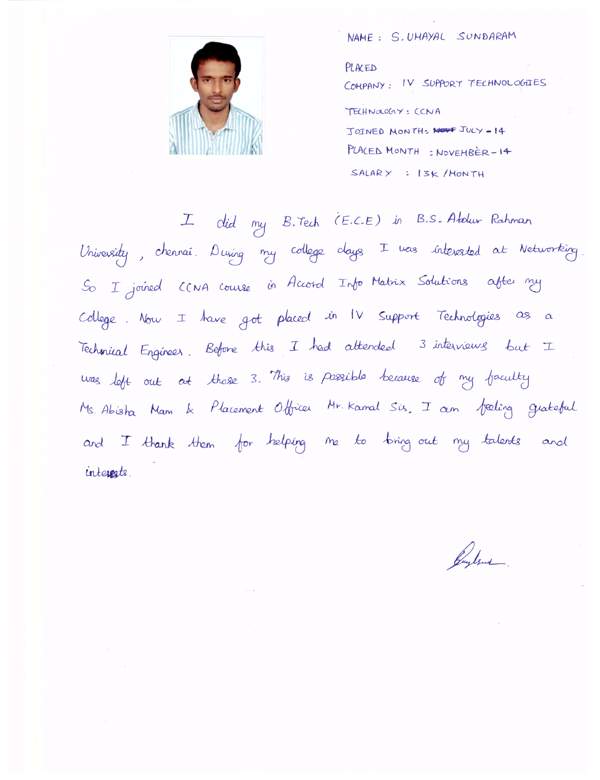 NAME : S. UMAYAL SUNDARAM
PLACED
COMPANY : IV SUPPORT TECHNOLOGIES
TECHNOLOGY : CCNA
JOINED MONTH : JULY - 14
PLACED MONTH : NOVEMBER - 14
SALARY : 13K / MONTH
I did my B.Tech (E.C.E) in B.S. Abdur Rahman
University, chennai. During my college days I was interested at Networking.
So I joined CCNA course in Accord Info Matrix Solutions after my
College. Now I have got placed in IV Support Technologies as a
Technical Engineer. Before this I had attended 3 interviews but I
was left out at those 3. This is possible because of my faculty
Ms. Abisha Mam & Placement Officer Mr. Kamal Sir. I am feeling grateful
and I thank them for helping me to bring out my talents and
interests.